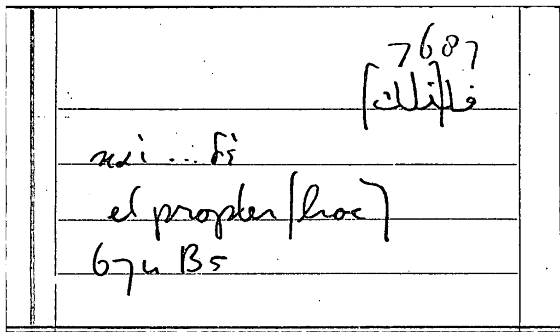 7687
فل[ذلك]
καὶ ...
et propter [hoc]
674 B5